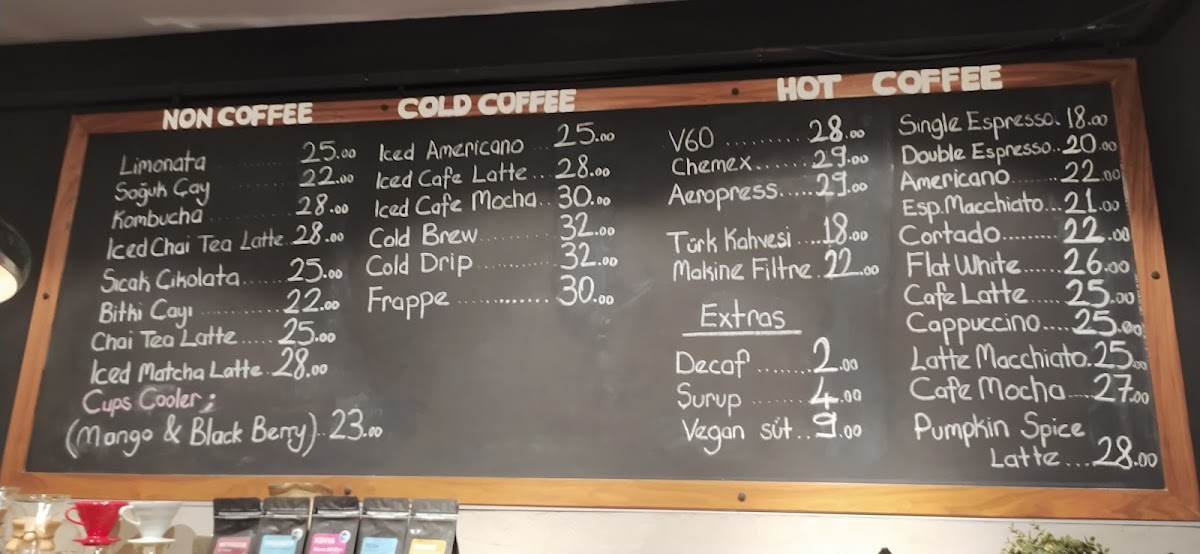 NON COFFEE
Limonata ........ 25.00
Soğuk Çay ........ 22.00
Kombucha ........ 28.00
Iced Chai Tea Latte 28.00
Sıcak Çikolata...... 25.00
Bitki Çayı ........ 22.00
Chai Tea Latte ..... 25.00
Iced Matcha Latte.. 28.00
Cups Cooler;
(Mango & Black Berry).. 23.00
COLD COFFEE
Iced Americano ... 25.00
Iced Cafe Latte... 28.00
Iced Cafe Mocha.. 30.00
Cold Brew......... 32.00
Cold Drip ......... 32.00
Frappe ............ 30.00
HOT COFFEE
V60 ......... 28.00
Chemex...... 29.00
Aeropress..... 29.00
Türk Kahvesi .... 18.00
Makine Filtre .. 22.00
Extras
Decaf ....... 2.00
Şurup ....... 4.00
Vegan süt.. 9.00
Single Espresso. 18.00
Double Espresso.. 20.00
Americano...... 22.00
Esp.Macchiato... 21.00
Cortado........ 22.00
Flat White.... 26.00
Cafe Latte .... 25.00
Cappuccino.... 25.00
Latte Macchiato. 25.00
Cafe Mocha.... 27.00
Pumpkin Spice
Latte... 28.00
KENYA